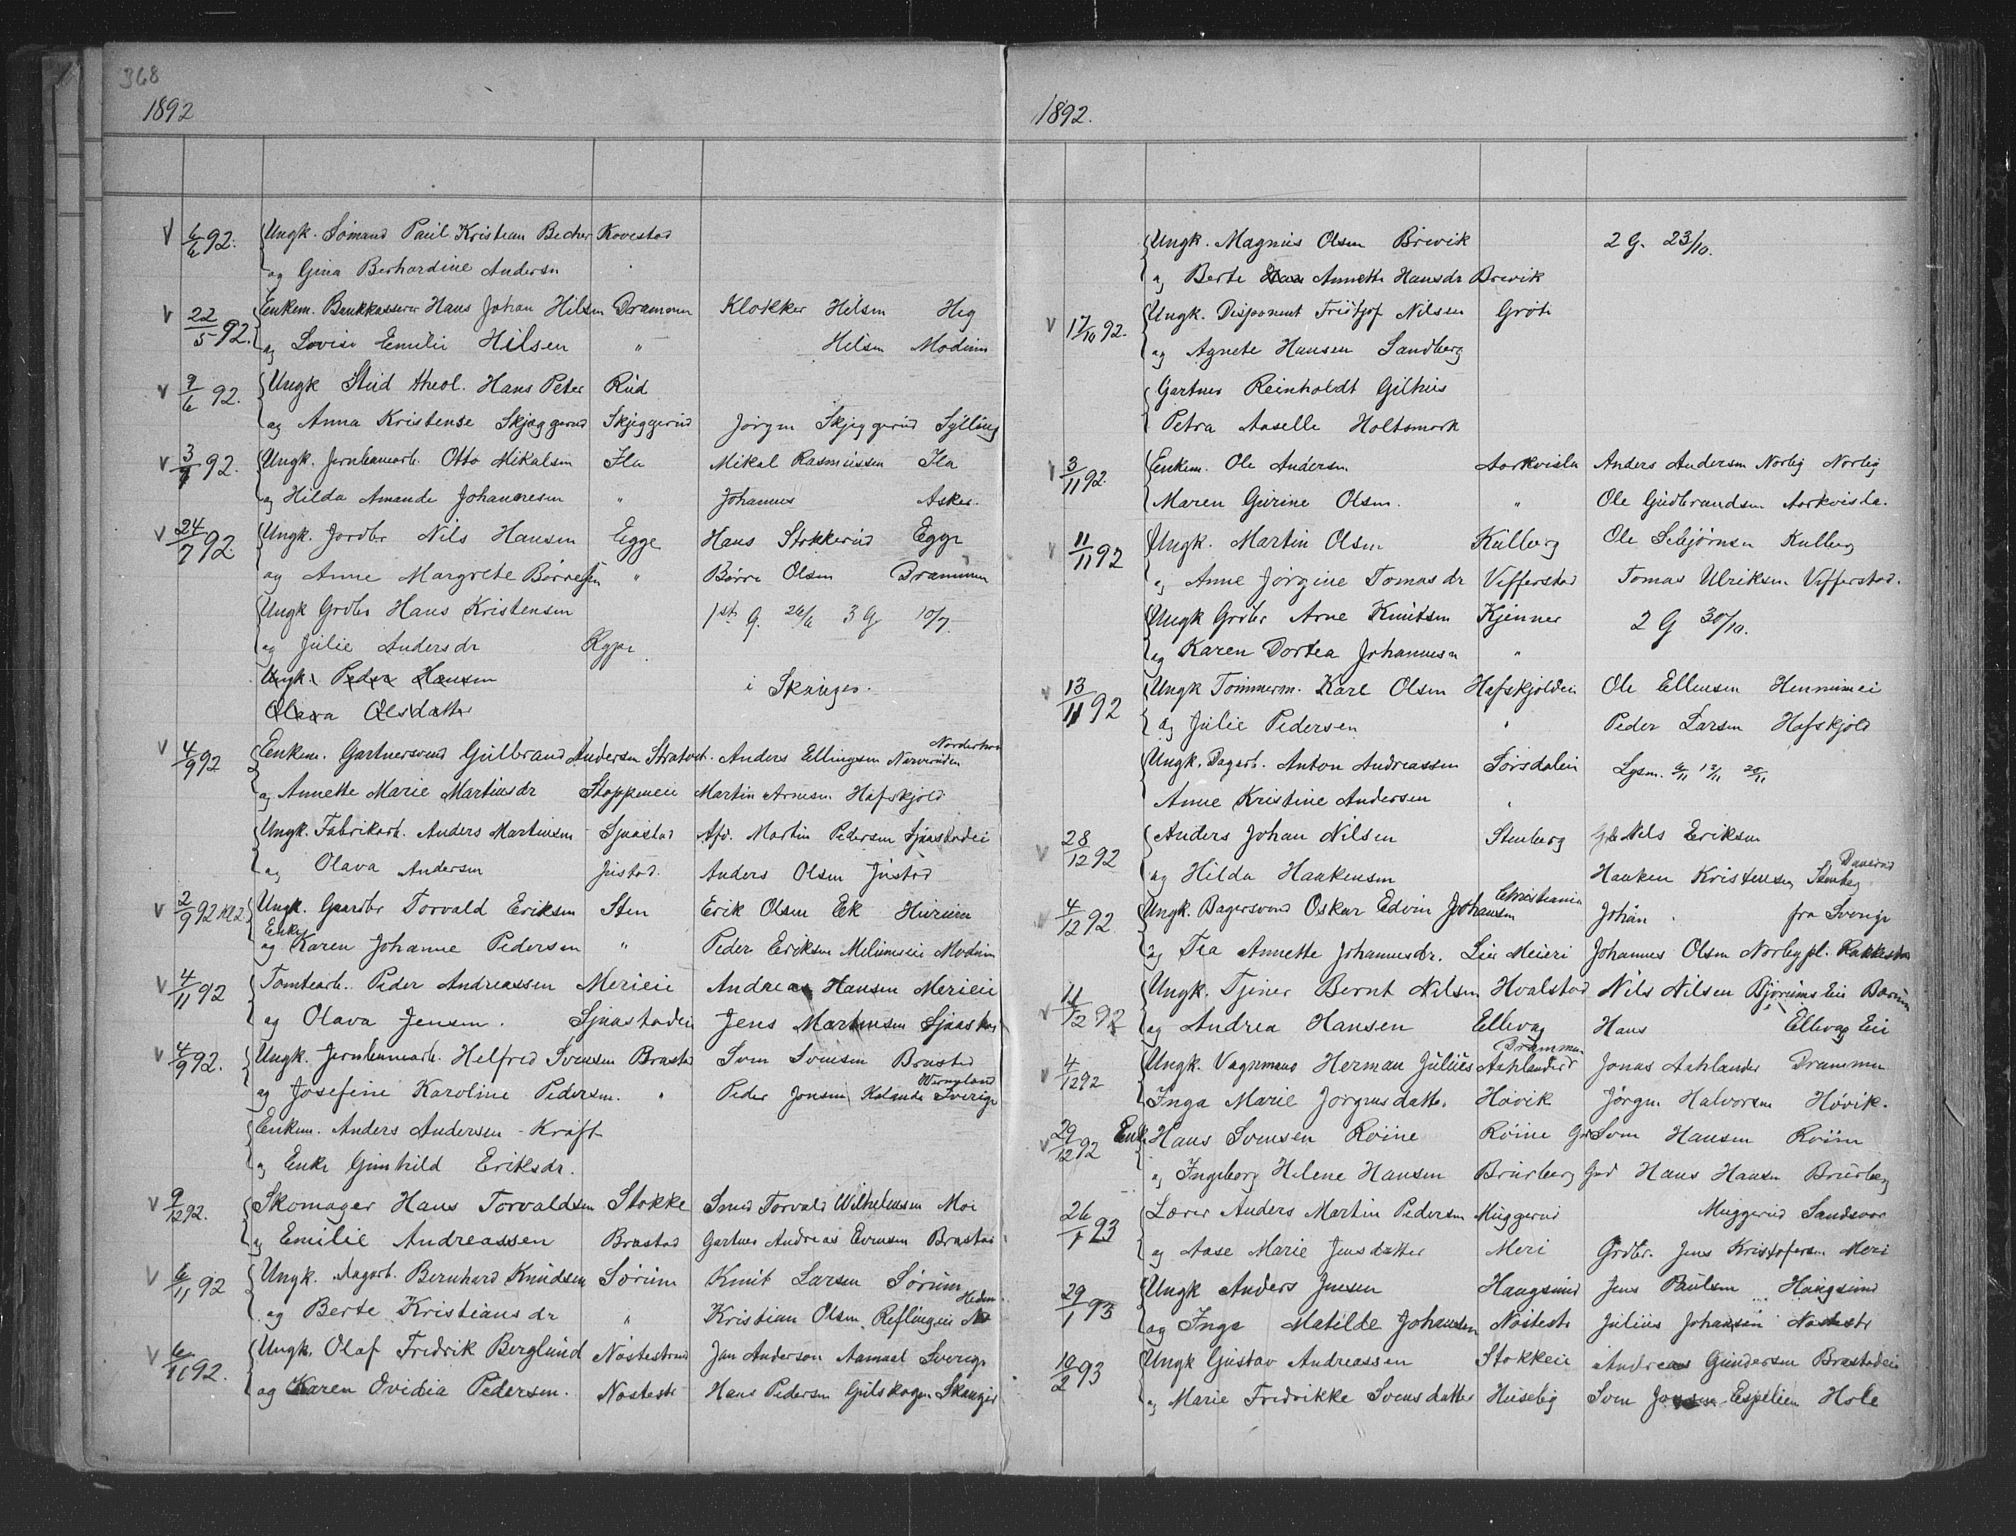 368
1892
V 6/6 92. Ungk. Sømand Paul Kristian Becher Kovestad
og Gina Berhardine Andersn "
V 22/5 92. Enkem. Bankkasserer Hans Johan Hilsen Drammen Klokker Hilsen Hig
og Lovise Emilie Hilsen " Hilsen Modum
V 9/6 92. Ungk Stud theol. Hans Peter Rud
og Anna Kristense Skjæggerud Skjeggerud Jørgen Skjeggerud Sylling
V 3/7 92. Ungk. Jernbanearb. Otto Mikalsen Ila Mikal Rasmussen Ila
og Hilda Amande Johannesen " Johannes Asker.
V 24/7 92 Ungk. Jordbr Nils Hansen Egge Hans Stokkerud Egge
og Anne Margrete Børresen " Børre Olsen Drammen
Ungk Grdbr Hans Kristensen 1ste G. 26/6 3 G 10/7.
og Julie Andersdr Rype
Ungk. Peder Hansen i Skauger.
Olava Olsdatter
V 4/9 92 Enkem. Gartnersvend Gulbrand Andersen Anders Ellingsen Norderhov
og Annette Marie Martinsdr Stoppeneie Martin Arnesn Hafskjold
Ungk. Fabrikarb. Anders Martinsen Sjaastad Afd. Martin Pedersen Sjaastadei
og Olava Andersen Justad. Anders Olsen Justad
V 2/9 92 Kl 2 Ungk. Gaardbr Torvald Eriksen Sten Erik Olsen Ek Hurum
og Enke Karen Johanne Pedersen " Peder Eriksen Modum
V 4/11 92 Tomtearb. Peder Andreassen Merieie Andreas Hansen Merieie
og Olava Jensen. Sjaastadeie Jens Martinsen Sjaastad
V 4/9 92. Ungk. Jernbanearb. Helfred Svensen Brastad Sven Svensen Brastad
og Josefine Karoline Pedersen. " Peder Jonsen Kalande Wermeland Sverige
Enkem. Anders Andersen - Kraft
og Enke Gunhild Eriksdr.
V 9/12 92. Skomager Hans Torvaldsen Stokke Smed Torvald Wilhelmsen Moe
og Emilie Andreassen Brastad Gartner Andreas Evensen Brastad
V 6/11 92 Ungk. Dagarb. Bernhard Knudsen Sørum Knut Larsen Sørum
og Berte Kristiansdr " Kristian Olsen
V 6/11 92. Ungk. Olaf Fredrik Berglund Nøstestrand Jan Anderson Aamaal Sverige
og Karen Ovidia Pedersen. Nøstestr Hans Pedersen Gulskogen Skauger
1892.
Ungk. Magnus Olsen Brevik 2 G. 23/10.
og Berte Annette Hansdr Brevik
V 17/10 92. Ungk. Disponent Fridtjof Nilssen Grøte
og Agnete Hansen Sandberg
Gartner Reinholdt Gilhus
Petra Aaselle Holtsmark
V 3/11 92. Enkem. Ole Andersen Aarkvisla Anders Andersen Norlig Norlig
Maren Gurine Olsen. " Ole Gudbrandsen Aarkvisla.
V 11/11 92 Ungk. Martin Olsen Kulberg Ole Sebjørnsen Kulberg
og Anne Jørgine Tomasdr Vefferstad Tomas Ulriksen Vefferstad.
Ungk Grdbr Arne Knutsen Kjenner 2 G 30/10.
og Karen Dortea Johannesen "
V 13/11 92 Ungk Tømmerm. Karl Olsen Hafskjoldeie Ole Ellensen Hennumei
og Julie Pedersen " Peder Larsen Hafskjold
Ungk. Dagarb. Anton Andreassen Sørsdalen Lysn. 6/11 13/11 20/11
Anne Kristine Andersen "
V 28/12 92 Anders Johan Nilsen Stenberg Nels Eriksen
og Hilda Haakensen Haaken Kristensen Stenberg
V 4/12 92 Ungk. Bagersvend Oskar Edvin Johansen Christiania Johan fra Sverige
og Tea Annette Johannesdr. Lier Meieri Johannes Olsen Norbypl. Rakkestad
V 11/12 92 Ungk. Tjener Bernt Nilsen Hvalstad Nils Nilsen Bjorums Eie Bærum
og Andrea Hansen Ellevag Hans Ellevag Eie
V 4/12 92 Ungk. Vognmand Herman Julius Aahlander Drammen Jonas Aahlander Drammen
Inga Marie Jørgensdatter Høvik Jørgen Halvorsen Høvik.
V 29/12 92 Enk. Hans Svensen Røine Røine Grd Sven Hansen Røine
og Ingeborg Helene Hansen Brurberg Grd Hans Hansen Brurberg
26/1 93 Lærer Anders Martin Pedersen Muggerud Muggerud Sandsvær
og Aase Marie Jensdatter Meri Grdbr. Jens Kristofersen Meri
29/1 93 Ungk Anders Jensen Haugsund Jens Paulsen Haugsund
og Inga Matilde Johansen Nøstestr Julius Johansen Nøstestr
10/2 93 Ungk Gustav Andreassen Stokkeie Andreas Gundersen Brastadeie
og Marie Fredrikke Svensdatter Huseby Sven Jonsen Espelien Hole